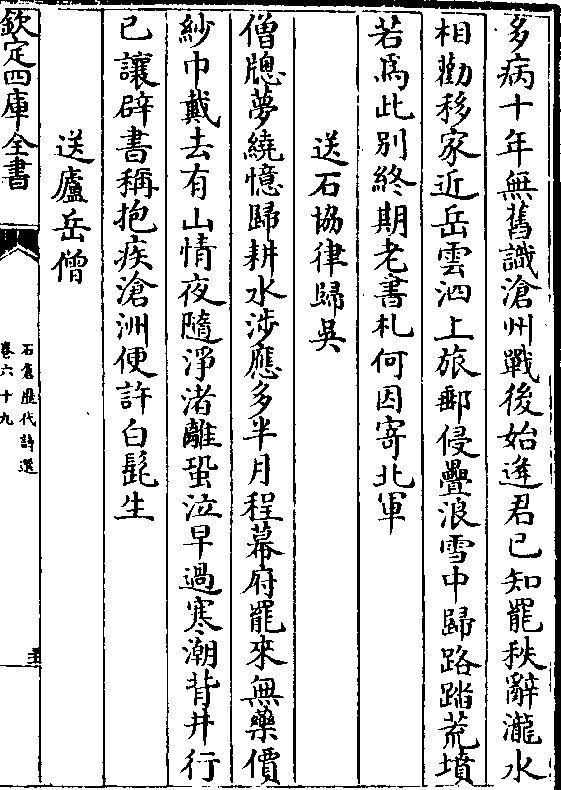 多病十年無舊識滄州戰後始逢君已知罷秩辭瀧水
相勸移家近岳雲泗上旅郵侵疊浪雪中歸路踏荒墳
若爲此别終期老書札何因寄北軍
送石協律歸吳
僧牕夢繞憶歸耕水涉應多半月程幕府罷來無藥價
紗巾戴去有山情夜隨淨渚離蛩泣早過寒潮背井行
已讓辟書稱抱疾滄洲便許白髭生
送廬岳僧
欽定四庫全書
石倉歷代詩選
卷六十九